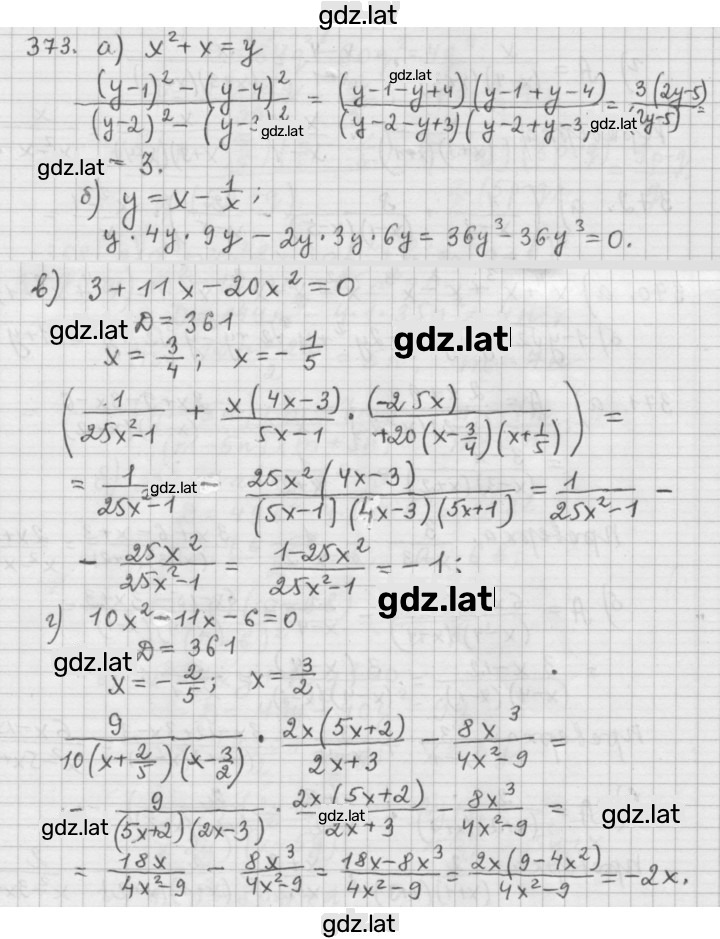 gdz.lat
373. а) x²+x=y
((y-1)² - (y-4)²)/((y-2)² - (y-3)²) = ((y-1-y+4)(y-1+y-4))/((y-2-y+3)(y-2+y-3)) = 3(2y-5)/(2y-5) =
gdz.lat
gdz.lat
gdz.lat
gdz.lat = 3.
б) y = x - 1/x ;
y·4y·9y - 2y·3y·6y = 36y³ - 36y³ = 0.
в) 3+11x-20x²=0
gdz.lat D = 361
x = 3/4 ; x = - 1/5
gdz.lat
(1/(25x²-1) + x(4x-3)/(5x-1) · (-25x)/(+20(x-3/4)(x+1/5))) =
= 1/(25x²-1) - 25x²(4x-3)/((5x-1)(4x-3)(5x+1)) = 1/(25x²-1) -
gdz.lat
- 25x²/(25x²-1) = (1-25x²)/(25x²-1) = -1 :
gdz.lat
г) 10x²-11x-6=0
gdz.lat D = 361
x = - 2/5 ; x = 3/2
9/(10(x+2/5)(x-3/2)) · 2x(5x+2)/(2x+3) - 8x³/(4x²-9) =
- 9/((5x+2)(2x-3)) · 2x(5x+2)/(2x+3) - 8x³/(4x²-9) =
gdz.lat
gdz.lat
gdz.lat
= 18x/(4x²-9) - 8x³/(4x²-9) = (18x-8x³)/(4x²-9) = 2x(9-4x²)/(4x²-9) = -2x.
gdz.lat